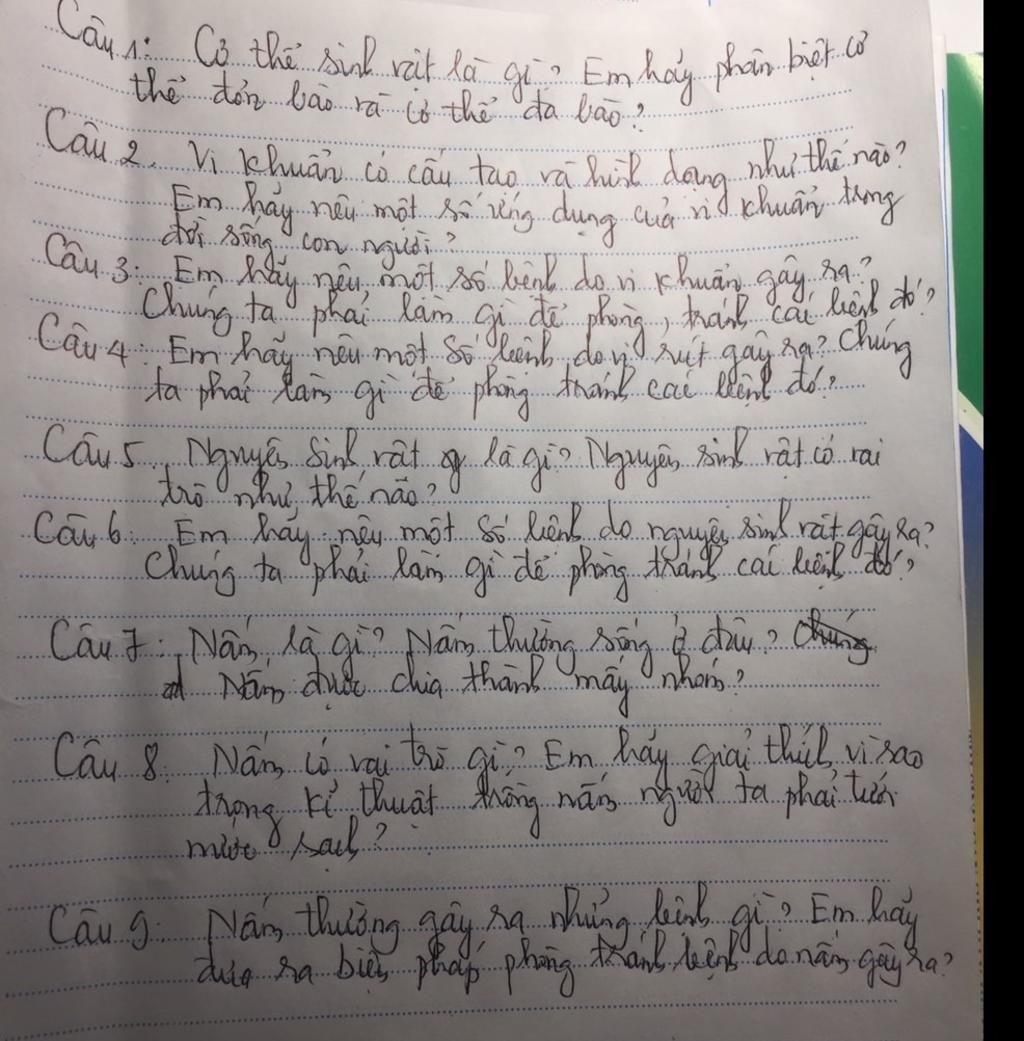 Câu 1: Cơ thể sinh vật là gì? Em hãy phân biệt cơ
thể đơn bào và cơ thể đa bào?
Câu 2. Vi khuẩn có cấu tạo và hình dạng như thế nào?
Em hãy nêu một số ứng dụng của vi khuẩn trong
đời sống con người?
Câu 3: Em hãy nêu một số bệnh do vi khuẩn gây ra?
Chúng ta phải làm gì để phòng, tránh các bệnh đó?
Câu 4: Em hãy nêu một số bệnh do vi rút gây ra? Chúng
ta phải làm gì để phòng tránh các bệnh đó?
Câu 5. Nguyên sinh vật là gì? Nguyên sinh vật có vai
trò như thế nào?
Câu 6: Em hãy nêu một số bệnh do nguyên sinh vật gây ra?
Chúng ta phải làm gì để phòng tránh các bệnh đó?
Câu 7: Nấm là gì? Nấm thường sống ở đâu? Chúng
Nấm được chia thành mấy nhóm?
Câu 8. Nấm có vai trò gì? Em hãy giải thích vì sao
trong kĩ thuật trồng nấm người ta phải tưới
nước sạch?
Câu 9. Nấm thường gây ra những bệnh gì? Em hãy
đưa ra biện pháp phòng tránh bệnh do nấm gây ra?